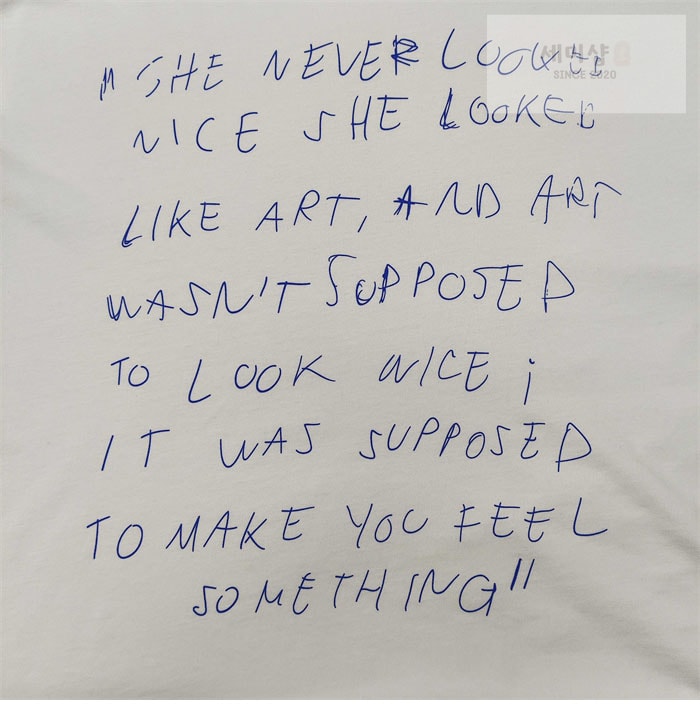 "SHE NEVER LOOKED
NICE SHE LOOKED
LIKE ART, AND ART
WASN'T SUPPOSED
TO LOOK NICE ;
IT WAS SUPPOSED
TO MAKE YOU FEEL
SOMETHING"
세컨샵
SINCE 2020